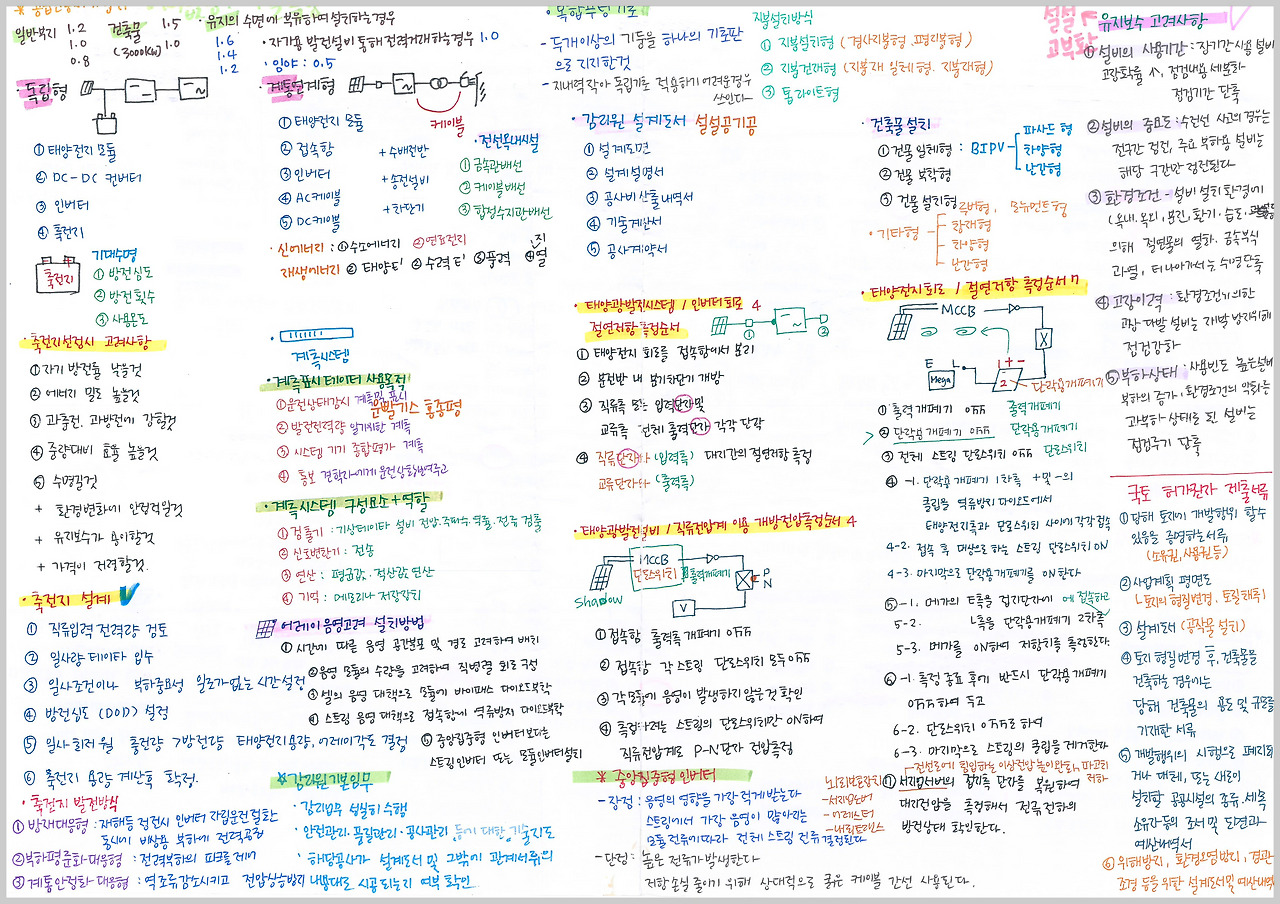 일반부지 1.2
1.0
0.8
건축물 1.5
(3000KW) 1.0
· 유지의 수면에 부유하여 설치하는 경우
1.6
1.4
1.2
· 자가용 발전설비 통해 전력거래하는경우 1.0
· 임야 : 0.5
· 독립형
① 태양전지 모듈
② DC-DC 컨버터
③ 인버터
④ 축전지
축전지
기대수명
① 방전심도
② 방전횟수
③ 사용온도
· 축전지선정시 고려사항
① 자기 방전률 낮을것
② 에너지 밀도 높을것
③ 과충전, 과방전에 강할것
④ 중량대비 효율 높을것
⑤ 수명길것
+ 환경변화에 안정적일것
+ 유지보수가 용이할것
+ 가격이 저렴할것.
· 축전지 설계
① 직류입력 전력량 검토
② 일사량 데이타 입수
③ 일사조건이나 부하중요성 일조가없는 시간 설정
④ 방전심도 (DOD) 설정
⑤ 일사 최저 월 충전량 > 방전량 태양전지용량, 어레이각도 결정
⑥ 축전지 용량 계산후 확정.
· 축전지 발전방식
① 방재대응형 : 재해등 정전시 인버터 자립운전 전환
동시에 비상용 부하에 전력공급
② 부하평준화 대응형 : 전력부하의 피크를 제어
③ 계통안정화 대응형 : 역조류감소시키고 전압상승방지
· 계통연계형
케이블
① 태양전지 모듈
② 접속함
③ 인버터
④ AC케이블
⑤ DC케이블
+ 수배전반
+ 송전설비
+ 차단기
· 전선옥내시설
① 금속관배선
② 케이블배선
③ 합성수지관배선
· 신에너지 : ① 수소에너지 ② 연료전지
재생에너지 ① 태양E' ② 수력E' ③ 풍력 ④ 지열
계측시스템
· 계측표시 데이타 사용목적
① 운전상태감시 계측및 표시
운발기스 홍종평
② 발전전력량 알기위한 계측
③ 시스템 기기 종합평가 계측
④ 홍보 견학자에게 운전상황보여주고
· 계측시스템 구성요소 + 역할
① 검출기 : 기상데이타 설비 전압.주파수.역률.전류 검출
② 신호변환기 : 전송
③ 연산 : 평균값, 적산값 연산
④ 기억 : 메모리나 저장장치
어레이 음영고려 설치방법
① 시간에 따른 음영 공간분포 및 경로 고려하여 배치
② 음영 모듈의 수량을 고려하여 직병렬 회로 구성
③ 셀의 음영 대책으로 모듈에 바이패스 다이오드부착
④ 스트링 음영 대책으로 접속함에 역류방지 다이오드부착
⑤ 중앙집중형 인버터보다는
스트링인버터 또는 모듈인버터설치
☆ 감리원기본임무
· 감리업무 성실히 수행
· 안전관리. 품질관리. 공사관리 등에 대한 기술지도
· 해당공사가 설계도서 및 그밖에 관계서류의
내용대로 시공되는지 여부 확인
· 복합부정 기초
- 두개이상의 기둥을 하나의 기초판
으로 지지한것
- 지내력 작아 독립기초 적용하기 어려운경우
쓰인다
지붕설치방식
① 지붕설치형 (경사지붕형. 평지붕형)
② 지붕건재형 (지붕재 일체형. 지붕재형)
③ 톱라이트형
· 감리원 설계도서 설설공기공
① 설계도면
② 설계설명서
③ 공사비산출내역서
④ 기술계산서
⑤ 공사계약서
· 태양광발전시스템 / 인버터회로 4
절연저항측정순서
① ②
① 태양전지 회로를 접속함에서 분리
② 분전반 내 분기차단기 개방
③ 직류측 모든 입력단자 및
교류측 전체 출력단자 각각 단락
④ 직류단자 (입력측) 대지간의 절연저항 측정
교류단자 (출력측)
· 태양광발전설비 / 직류전압계 이용 개방전압측정순서 4
shadow
MCCB
단로스위치
출력개폐기
P
N
V
① 접속함 출력측 개폐기 OFF
② 접속함 각 스트링 단로스위치 모두 OFF
③ 각모듈에 음영이 발생하지 않는것 확인
④ 측정하려는 스트링의 단로스위치만 ON하여
직류전압계로 P-N단자 전압측정
* 중앙집중형 인버터
- 장점 : 음영의 영향을 가장 적게받는다
스트링에서 가장 음영이 많아지는
모듈 전류에따라 전체 스트링 전류 결정된다
- 단점 : 높은 전류가 발생한다
저항손실 줄이기 위해 상대적으로 굵은 케이블 간선 사용된다.
뇌서지보호장치
- 서지업서버
- 어레스터
- 내뢰트랜스
· 건축물 설치
① 건물 일체형 : BIPV
파사드 형
차양형
난간형
② 건물 부착형
③ 건물 설치형
· 기타형
루버형,
창재형
차양형
난간형
· 태양전지회로 / 절연저항 측정순서 7
MCCB
E L
Mega
1 + -
2
단락용개폐기
① 출력개폐기 OFF 출력개폐기
② 단락용개폐기 OFF 단락용개폐기
③ 전체 스트링 단로스위치 OFF 단로스위치
④ -1. 단락용개폐기 1차측 + 및 -의
클립을 역류방지 다이오드에서
태양전지측과 단로스위치 사이에 각각접속
4-2. 접속 후 대상으로 하는 스트링 단로스위치 ON
4-3. 마지막으로 단락용개폐기를 ON한다
⑤ -1. 메가의 E측을 접지단자에 접속하고
5-2. L측을 단락용개폐기 2차측
5-3. 메가를 ON하여 저항치를 측정한다.
⑥ -1 측정 종료 후에 반드시 단락용개폐기
OFF하여 두고
6-2. 단로스위치 OFF로 하여
6-3. 마지막으로 스트링의 클립을 제거한다
- 전선로에 침입하는 이상전압 높이완화, 파고치 저하
⑦ 서지업서버의 접지측 단자를 복원하여
대지전압을 측정해서 잔류전하의
방전상태 확인한다.
유지보수 고려사항
① 설비의 사용기간 : 장기간 사용 설비
고장확률 ↑, 점검내용 세분화
점검기간 단축
② 설비의 중요도 : 수전선 사고의 경우는
전구간 정전, 주요 부하용 설비는
해당 구간만 정전된다
③ 환경조건 - 설비 설치 환경에
(옥내.옥외, 분진, 환기. 습도.
의해 절연물의 열화. 금속부식
과열, 더나아가서는 수명단축
④ 고장이력 : 환경조건기의한
고장 다발 설비는 재발 방지위해
점검강화
⑤ 부하상태 : 사용빈도 높은설비
부하의 증가, 환경조건의 악화는
과부하 상태로 된 설비는
점검주기 단축
국토 허가권자 제출서류
① 당해 토지에 개발행위 할수
있음을 증명하는 서류
(소유권, 사용권 등)
② 사업계획 평면도
└ 토지의 형질변경. 토질채취
③ 설계도서 (공작물 설치)
④ 토지 형질변경 후, 건축물을
건축하는 경우에는
당해 건축물의 용도 및 규모를
기재한 서류
⑤ 개발행위의 시행으로 폐지되
거나 대체, 또는 새로이
설치할 공공시설의 종류. 세목
소유자등의 조서 및 도면과
예산내역서
⑥ 위해방지, 환경오염방지, 경관
조경 등을 위한 설계도서 및 예산내역